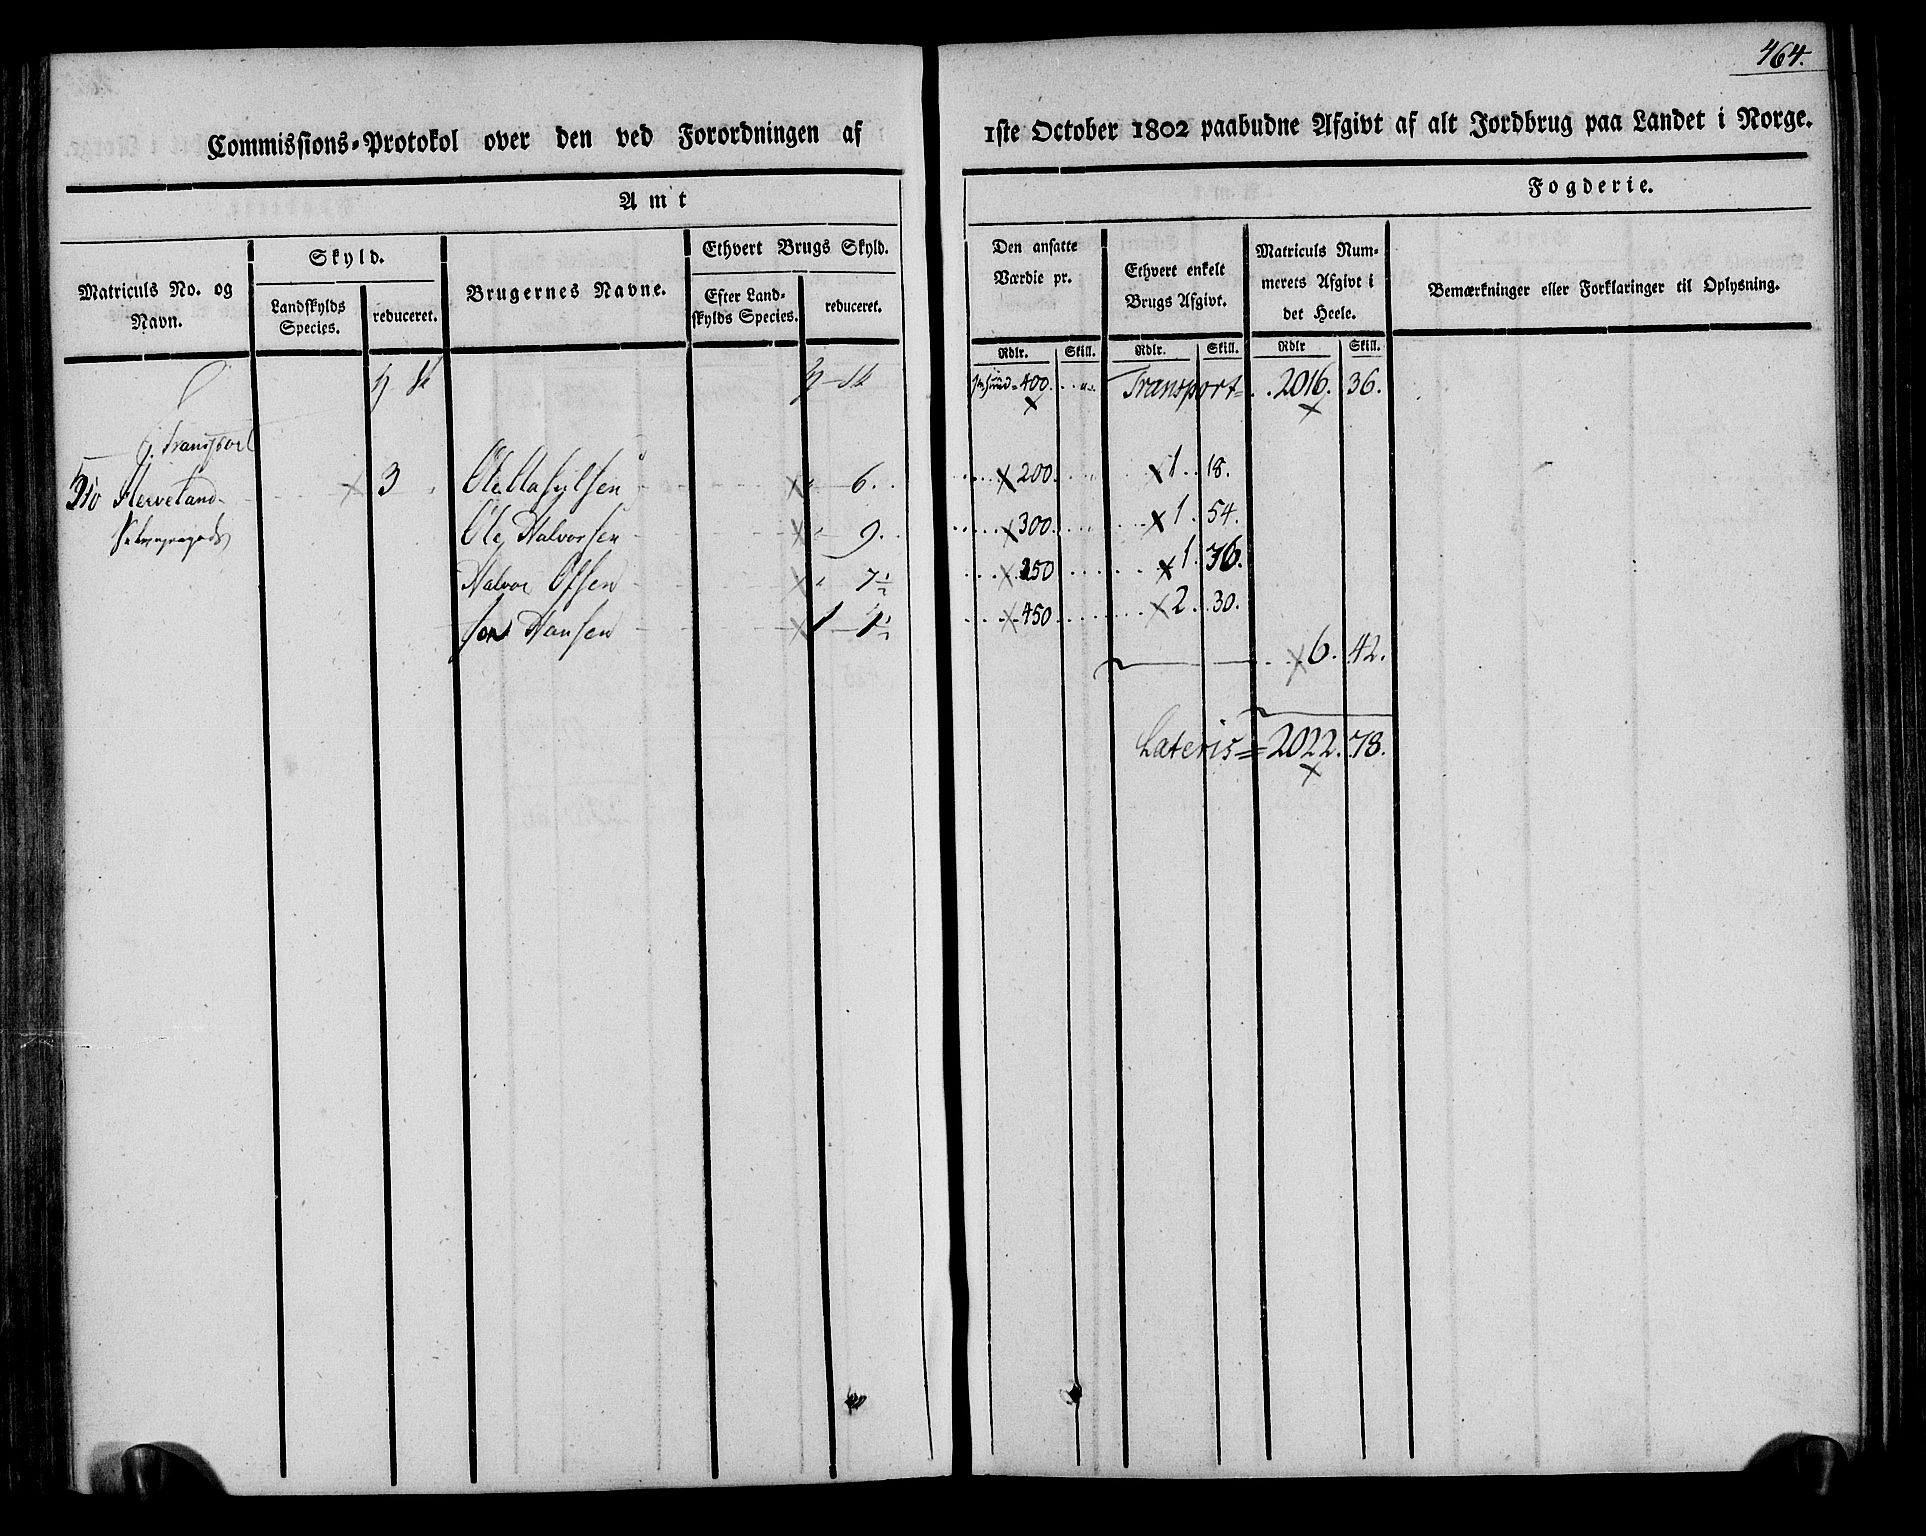 464.
Commissions-Protokol over den ved Forordningen af 1ste October 1802 paabudne Afgivt af alt Jordbrug paa Landet i Norge.
Amt
Fogderie.
Matriculs No. og Navn.
Skyld.
Landskylds Species.
reduceret.
Brugernes Navne.
Ethvert Brugs Skyld.
Efter Landskylds Species.
reduceret.
Den ansatte Værdie pr.
Ethvert enkelt Brugs Afgivt.
Matriculs Nummerets Afgivt i det Heele.
Bemærkninger eller Forklaringer til Oplysning.
Rdlr. Skill. Rdlr. Skill. Rdlr Skill.
400. Transport 2016. 36.
Transport
3 Ole 6. 200. 1. 18.
Ole Halvorsen 9. 300. 1. 54.
Halvor Olsen 7½ 250 1. 36.
Hansen 1 4½ 450 2. 30.
6. 42.
Lateris = 2022. 78.